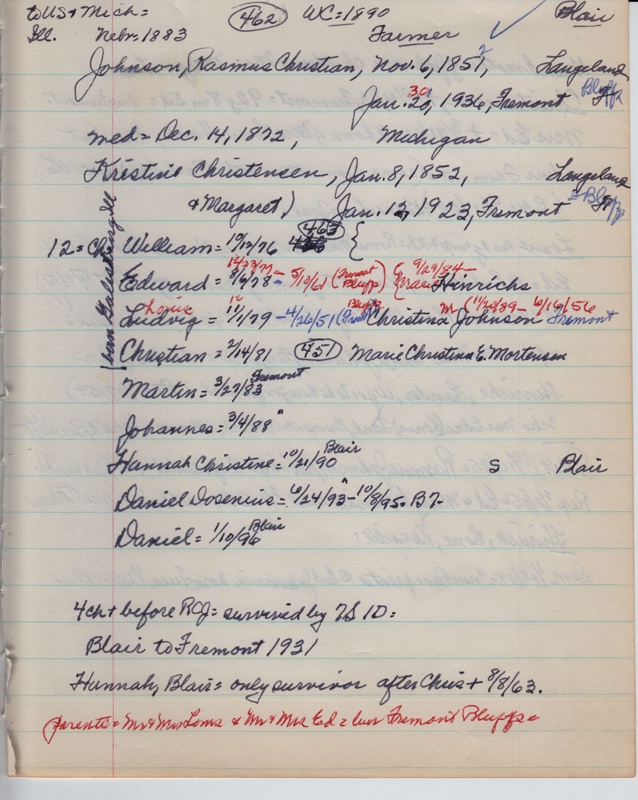 to US + Mich = 462 WC = 1890 Blair
Ill. Nebr. 1883 Farmer
Johnson, Rasmus Christian, Nov. 6, 1851, 2 Langeland
Jan. 20, 30 1936, Fremont Bluffs
med = Dec. 14, 1872, Michigan
Kristine Christensen, Jan. 8, 1852, Langeland
& Margaret) Jan. 12, 1923, Fremont = Bluffs
12 = Ch = William = 10/12/76 463 {
Edward = 8/6/78 - 5/10/61 (Fremont Bluffs) { 9/29/84 - Marie Hinrichs
Louis
Ludvig = 11/1/79 - 4/26/51 Bluffs Christina Johnson m (11/20/89 - 6/16/56 Fremont
Christian = 2/14/81 451 Marie Christina E. Mortensen
Martin = 3/27/83 Fremont
Johannes = 3/4/88 "
Hannah Christine = 10/21/90 Blair S Blair
Daniel Dosenius = 6/24/93 " - 10/8/95. B7.
Daniel = 1/10/96 Blair
born Galesburg Ill
4 ch + before RCJ = survived by 7S 1D =
Blair to Fremont 1931
Hannah, Blair = only survivor after Chris + 8/8/63.
Parents = Mr & Mrs Louis & Mr & Mrs Ed = bur Fremont Bluffs =